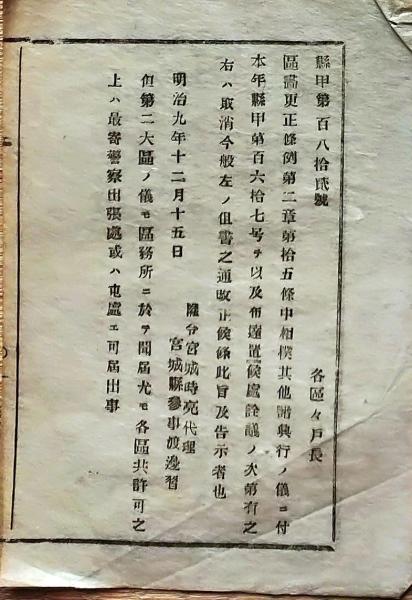 縣甲第百八拾貳號
各區々戸長
區畫更正條例第二章第拾五條中相撲其他諸興行ノ儀ニ付
本年縣甲第百六拾七号ヲ以及布達置候處詮議ノ次第有之
右ハ取消今般左ノ但書之通改正候條此旨及告示者也
明治九年十二月十五日
縣令宮城時亮代理
宮城縣參事渡邊習
但第二大區ノ儀モ區務所ニ於テ聞届尤モ各區共許可之
上ハ最寄警察出張處或ハ屯處エ可届出事